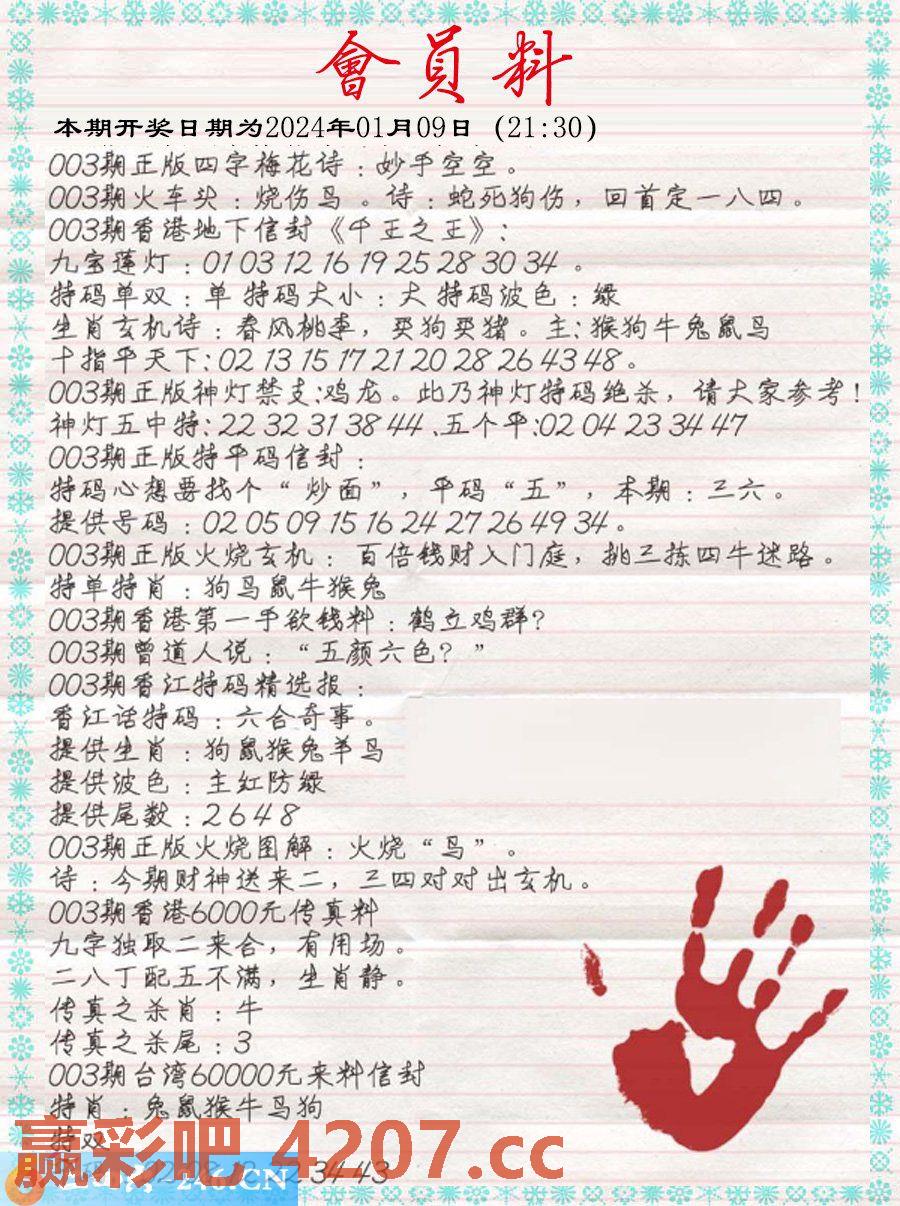 會員料
本期开奖日期为2024年01月09日（21:30）
003期正版四字梅花诗：妙手空空。
003期火车头：烧伤鸟。诗：蛇死狗伤，回首定一八四。
003期香港地下信封《千王之王》：
九宝莲灯：01 03 12 16 19 25 28 30 34 。
特码单双：单 特码大小：大 特码波色：绿
生肖玄机诗：春风桃李，买狗买猪。主：猴狗牛兔鼠鸟
十指平天下：02 13 15 17 21 20 28 26 43 48。
003期正版神灯禁支:鸡龙。此乃神灯特码绝杀，请大家参考！
神灯五中特：22 32 31 38 44 、五个平:02 04 23 34 47
003期正版特平码信封：
特码心想要找个“炒面”，平码“五”，本期：三六。
提供号码：02 05 09 15 16 24 27 26 49 34。
003期正版火烧玄机：百倍钱财入门庭，挑三拣四牛迷路。
特单特肖：狗鸟鼠牛猴兔
003期香港第一手欲钱料：鹤立鸡群？
003期曾道人说：“五颜六色？”
003期香江特码精选报：
香江话特码：六合奇事。
提供生肖：狗鼠猴兔羊鸟
提供波色：主红防绿
提供尾数：2 6 4 8
003期正版火烧图解：火烧“鸟”。
诗：今期财神送来二，三四对对出玄机。
003期香港6000元传真料
九字独取二来合，有用场。
二八丁配五不满，生肖静。
传真之杀肖：牛
传真之杀尾：3
003期台湾60000元来料信封
特肖：兔鼠猴牛鸟狗
特双
赢彩吧 4207.cc
246.CN
34 43